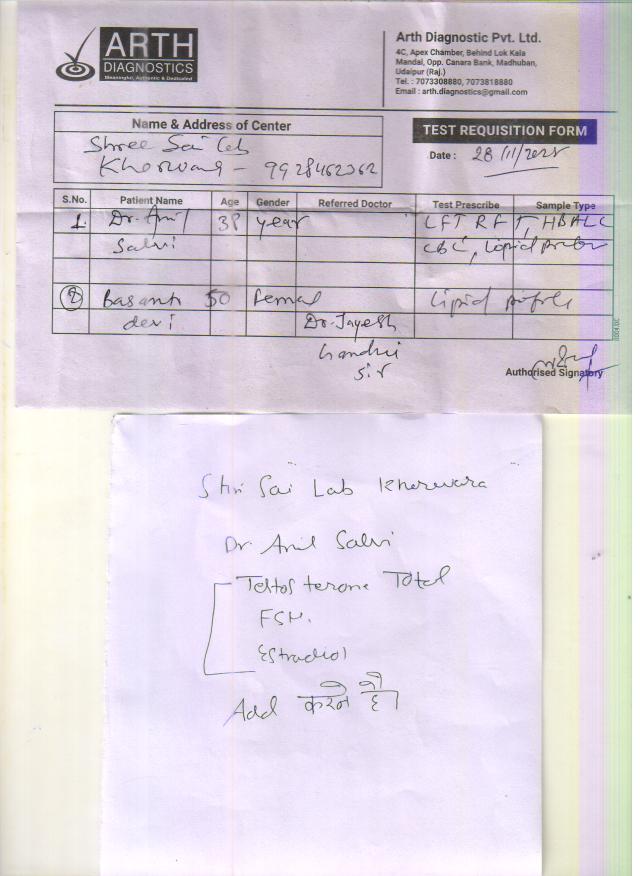 ARTH
DIAGNOSTICS
Meaningful, Authentic & Dedicated
Arth Diagnostic Pvt. Ltd.
4C, Apex Chamber, Behind Lok Kala
Mandal, Opp. Canara Bank, Madhuban,
Udaipur (Raj.)
Tel. : 7073308880, 7073818880
Email : arth.diagnostics@gmail.com
Name & Address of Center
Shree Sai Lab
TEST REQUISITION FORM
Date : 28/11/2025
S.No. Patient Name Age Gender Referred Doctor Test Prescribe Sample Type
1. Dr. Anil 38 year LFT RFT, HBA1C
Salvi CBC, Lipid
2 Basanti 50 Femal Lipid profile
devi Dr. Jayesh
Gandhi
Sir
Authorised Signatory
Shri Sai Lab Kherwara
Dr Anil Salvi
Testosterone Total
FSH.
Estradiol
Add करने है।